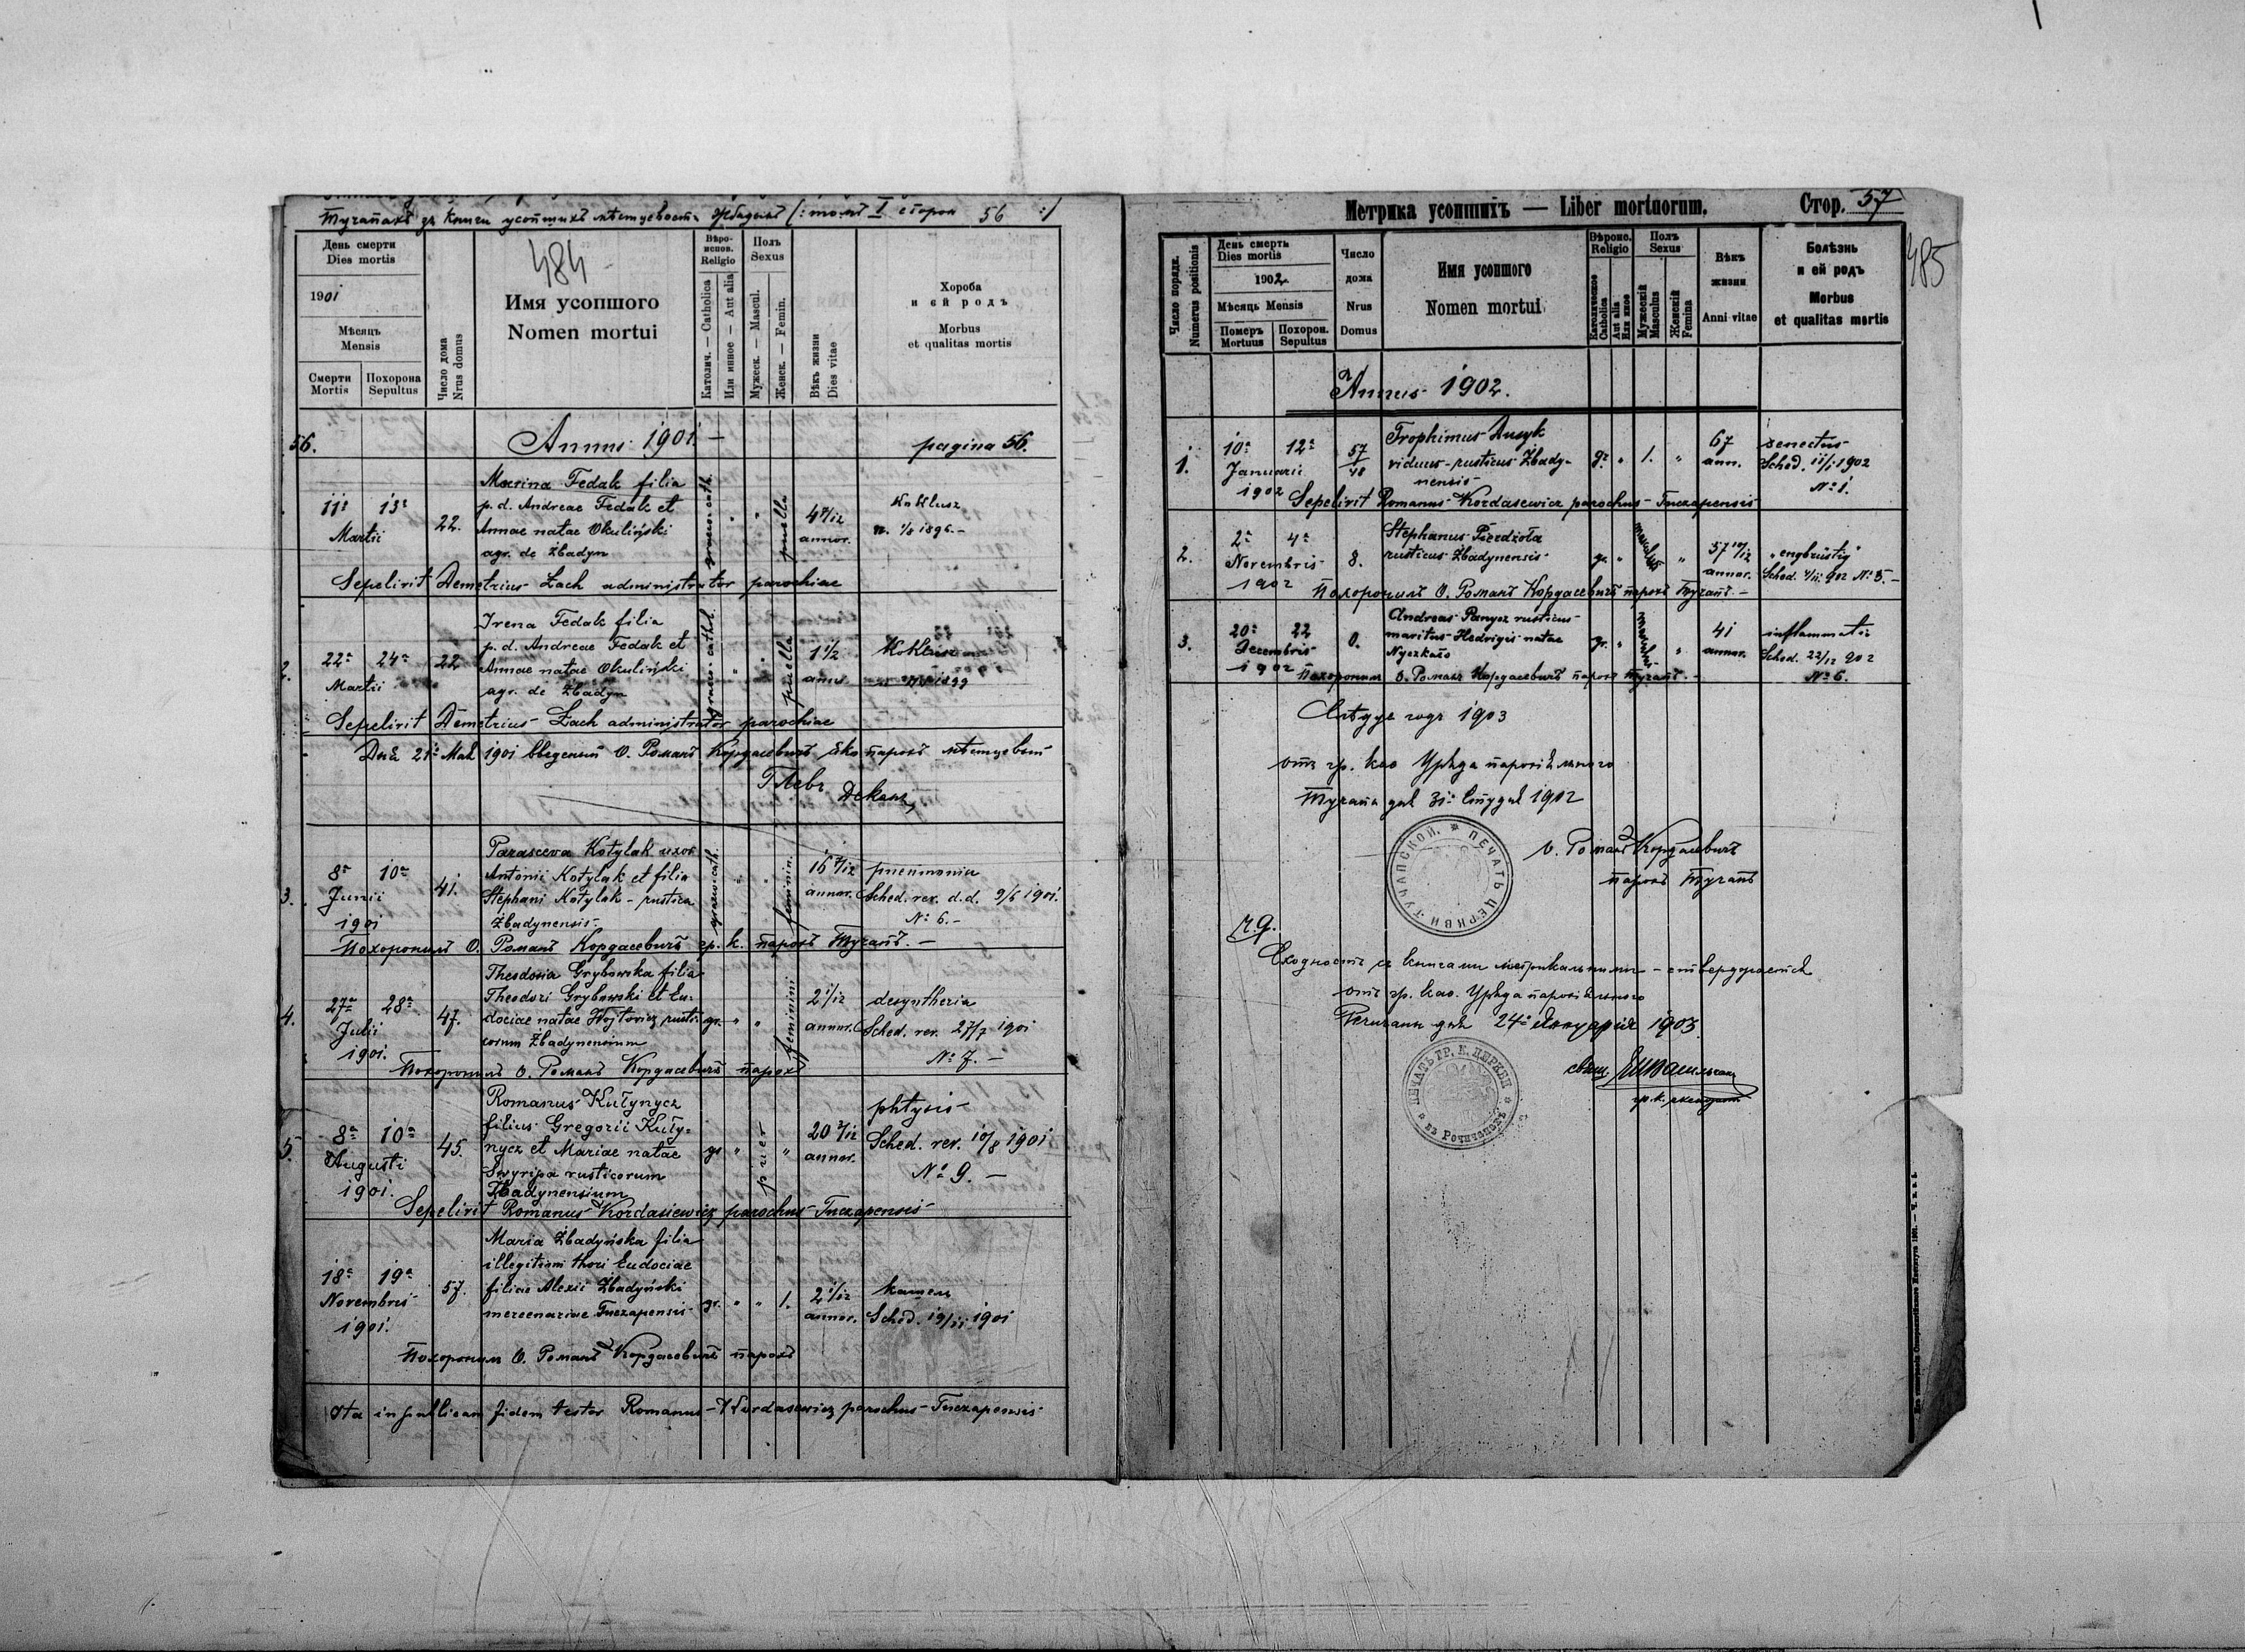 Тучапахъ зъ книги усопшихъ мѣстцевости Жбадынь /: томъ I сторон 56 :/
День смерти
Dies mortis
1901
Мѣсяцъ
Mensis
Смерти
Mortis
Похорона
Sepultus
Число дома
Nrus domus
484
Имя усопшого
Nomen mortui
Вѣро-
испов.
Religio
Католич. — Catholica
Или инное — Aut alia
Полъ
Sexus
Мужеск. — Mascul.
Женск. — Femin.
Вѣкъ жизни
Dies vitae
Хороба
и ей родъ
Morbus
et qualitas mortis
56. Annus 1901 — pagina 56.
Marina Fedak filia
p. d. Andreae Fedak et
Annae natae Okuliński
agr. de Żbadyn
11a 13a
Martii
22.
graeco cath. " " puella
4 annor.
Koklusz
1896. —
Sepelivit Demetrius Zach administrator parochiae
2.
Irena Fedak filia
p. d. Andreae Fedak et
Annae natae Okuliński
agr. de Żbadyn
22a 24a
Martii
22
graeco cathol. " " puella
1 1/2
anni
Koklusz
1899
Sepelivit Demetrius Zach administrator parochiae
Дня 21 Мая 1901 введеный О. Романъ Кордасевичъ яко парохъ мѣстцевый
Деканъ
3.
Parasceva Kotylak uxor
Antonii Kotylak et filia
Stephani Kotylak - rustica
Żbadynensis -
8a 10a
Junii
1901
41.
graeco cath. " " feminin.
16 annor.
pneumonia
Sched. rev. d.d. 9/6 1901.
No 6. -
Похоронилъ О. Романъ Кордасевичъ гр. к. парохъ Тучапъ. —
4.
Theodosia Grybowska filia
Theodori Grybowski et Eu-
dociae natae Wojtowicz rusti-
corum Żbadynensium
27a 28a
Julii
1901.
47.
gr. " " feminini
2 1/12
annor.
desyntheria
Sched. rev. 27/7 1901
No 7. —
Похоронилъ О. Романъ Кордасевичъ парохъ
5.
Romanus Kutynycz
filius Gregorii Kuty-
nycz et Mariae natae
Swyripa rusticorum
Żbadynensium
8a 10a
Augusti
1901.
45.
gr " puer "
20 annor.
phtysis
Sched. rev. 10/8 1901
No 9. —
Sepelivit Romanus Kordasiewicz parochus Tuczapensis
Maria Żbadyńska filia
illegitimi thori Eudociae
filiae Alexii Żbadyński
mercenariae Tuczapensis
18a 19a
Novembris
1901.
57.
gr. " " 1.
2 1/12
annor.
кашель
Sched. 19/11 1901
Похоронилъ О. Романъ Кордасевичъ парохъ
Ita in publicam fidem testor Romanus Kordasewicz parochus Tuczapensis
Метрика усопшихъ — Liber mortuorum.
Стор. 57
485
Число порядк.
Numerus positionis
День смерть
Dies mortis
1902
Мѣсяць Mensis
Померъ
Mortuus
Похорон.
Sepultus
Число
дома
Nrus
Domus
Имя усопшого
Nomen mortui
Вѣроис.
Religio
Католическое
Catholica
Aut alia
Или иное
Полъ
Sexus
Мужескій
Masculus
Женскій
Femina
Вѣкъ
жизни
Anni vitae
Болѣзнь
и ей родъ
Morbus
et qualitas mortis
Annus 1902.
1.
10a 12a
Januarii
1902
57
48
Trophimus Dusyk
viduus - rusticus Żbady-
nensis
gr. " 1. "
67
ann.
senectus
Sched. 11/1 1902
No 1.
Sepelivit Romanus Kordasewicz parochus Tuczapensis
2.
2a 4a
Novembris
1902
8.
Stephanus Pierdżoła
rusticus Żbadynensis
gr. " masculus "
57 10/12
annor.
"engbrüstig"
Sched. 4/11 902 No 5. —
Похоронилъ О. Романъ Кордасевичъ парохъ Тучапъ —
3.
20a 22
Decembris
1902
0.
Andreas Panycz rusticus
maritus Hedvigis natae
gr. " masculus "
41
annor.
inflammatio
Sched. 22/12 902
No 6.
Похоронилъ О. Романъ Кордасевичъ парохъ Тучапъ. -
Слѣдуе годъ 1903
отъ гр. као Уряда парохіяльного
Тучапы дня 31 Студня 1902
ПЕЧАТЬ ЦЕРКВИ ТУЧАПСКОЙ.
О. Романъ Кордасевичъ
парохъ Тучапъ
Сходность съ книгами метрикальными — стверджается
отъ гр. као. Уряда парохіяльного
дня 24 Януарія 1903
ПЕЧАТЬ ГР. К. ЦЕРКВИ